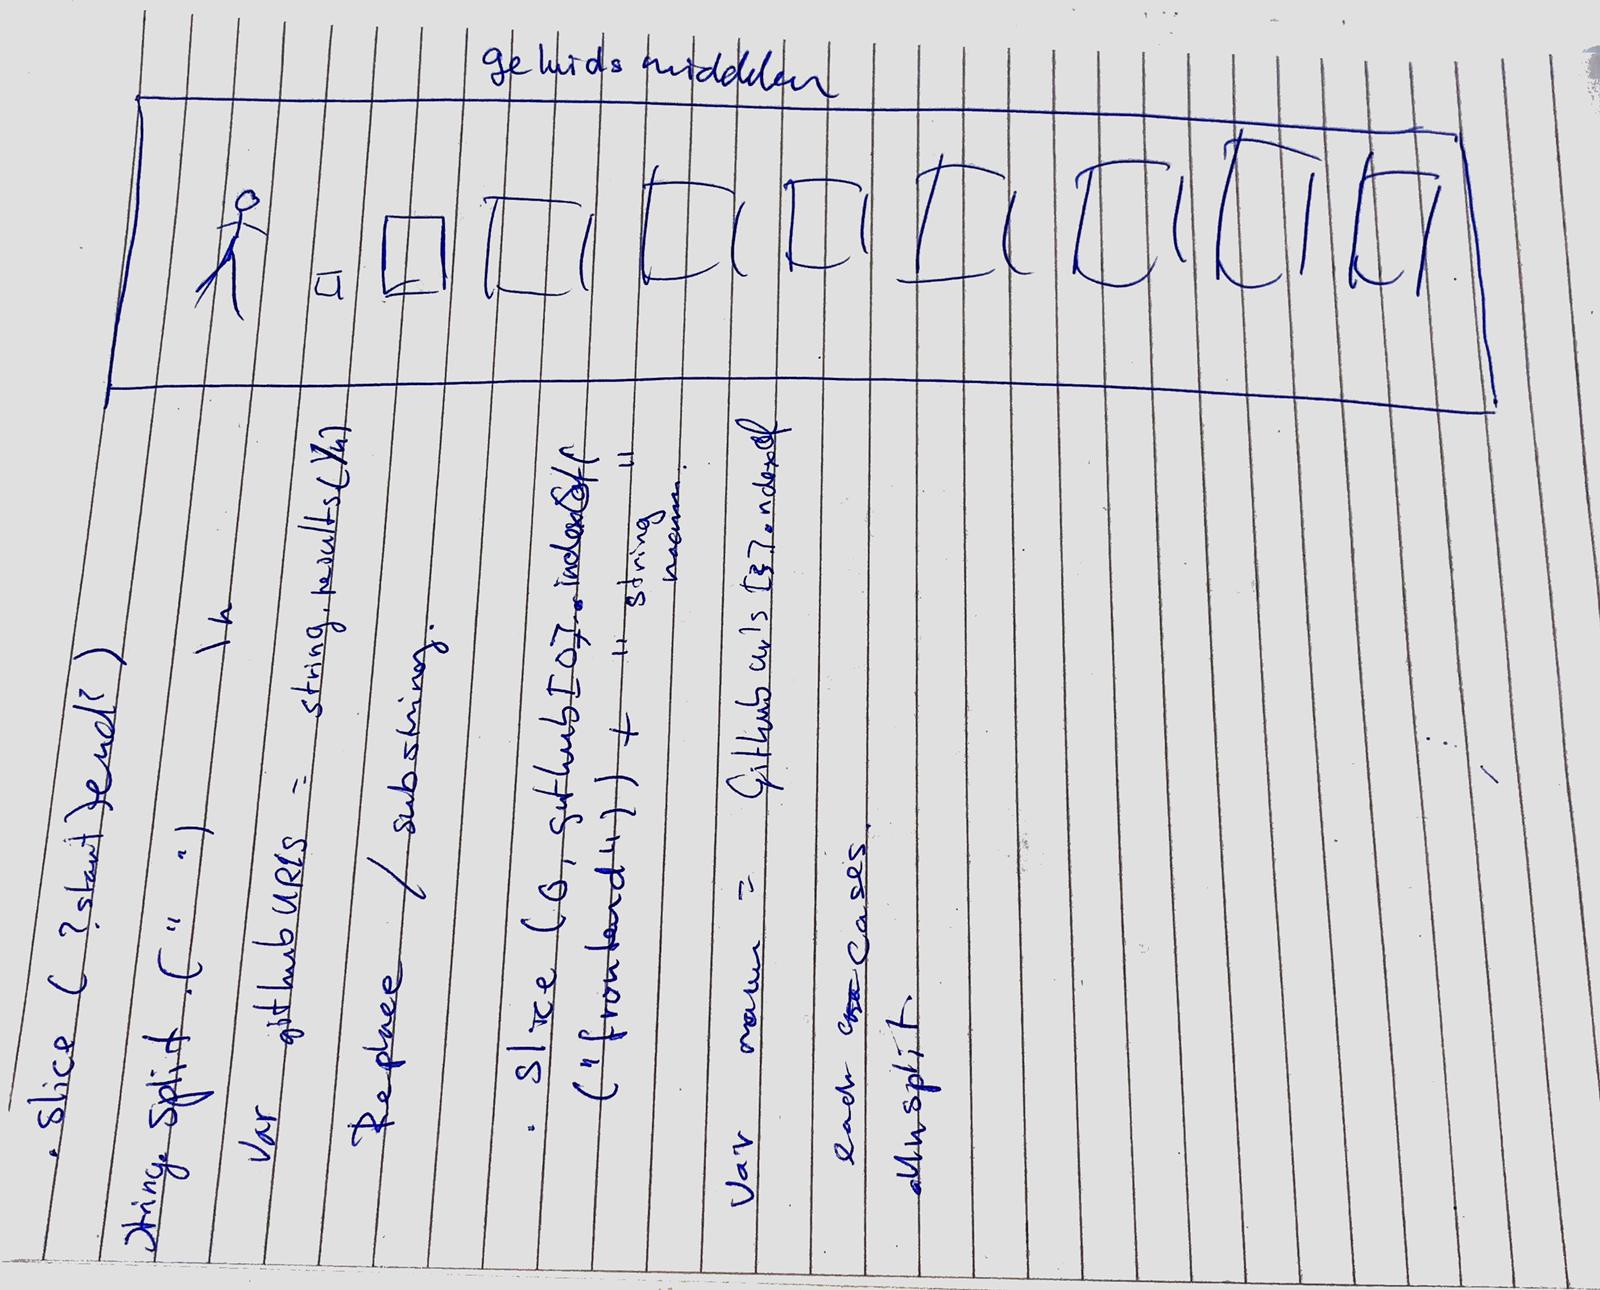 geluidsmiddelen
.slice (?start?end?)
string.split.(" ") \n
var githubURLS = string.results(\n)
Replace / substring.
.slice (0, github[0].indexOf(
("frontend")) + " string "
naam.
var naam = Github urls [3].ndexof
each cases.
split.